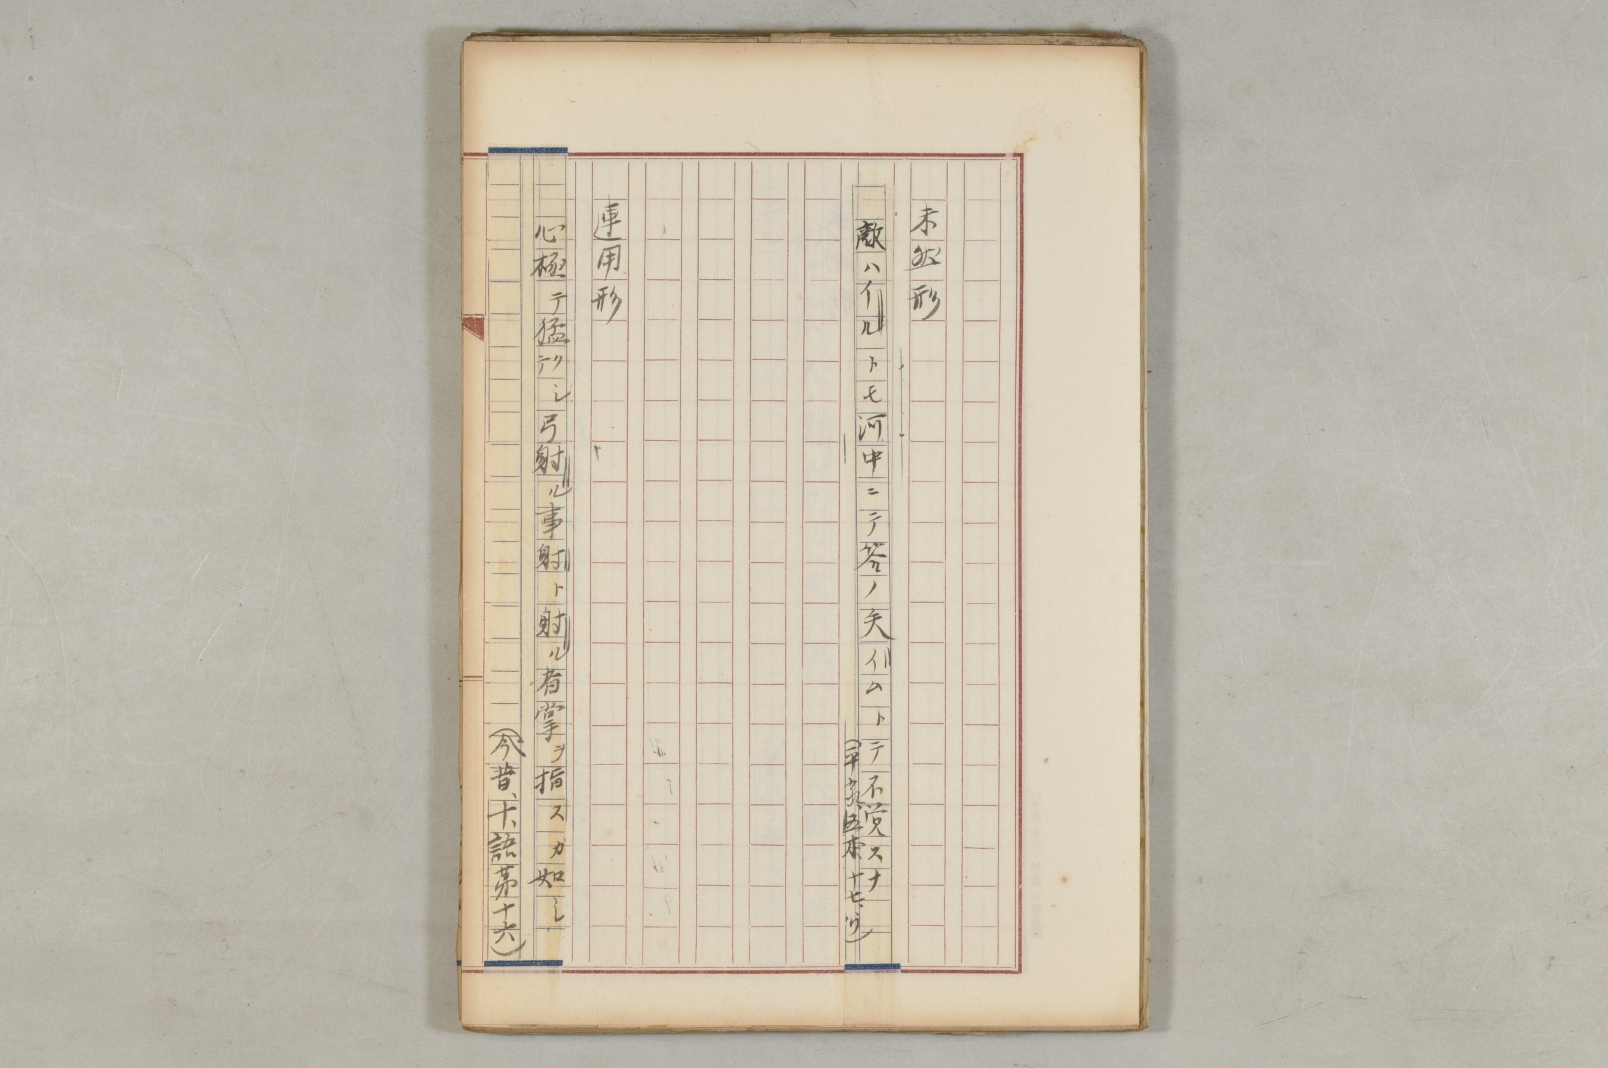 未然形
敵ハイルトモ河中ニテ答ノ矢イムトテ不覚スナ
(平家五本十七
連用形
心極テ猛クシテ弓射ル事射ト射ル者掌ヲ指スガ如シ
(今昔、十、語第十六)